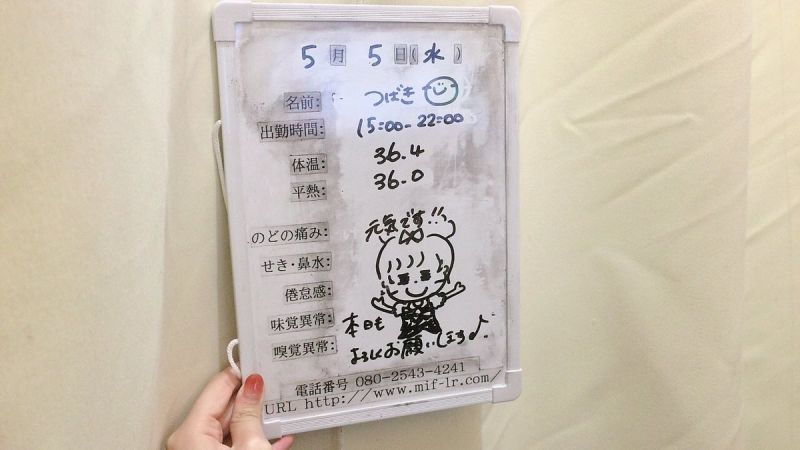 5月5日(水)
名前: つばき
出勤時間: 15:00-22:00
体温: 36.4
平熱: 36.0
のどの痛み: 元気です!!
せき・鼻水:
倦怠感:
味覚異常: 本日も
嗅覚異常: よろしくお願いします♪
電話番号 080-2543-4241
URL http://www.mif-lr.com/